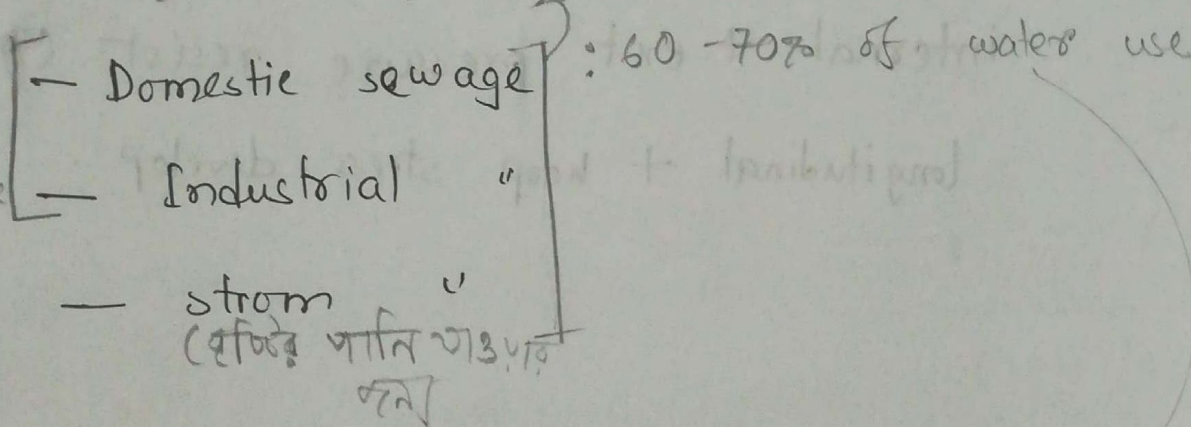 — Domestic sewage : 60 - 70% of water use
— Industrial "
— strom "
(বৃষ্টির পানি যাওয়ার
জন্য)